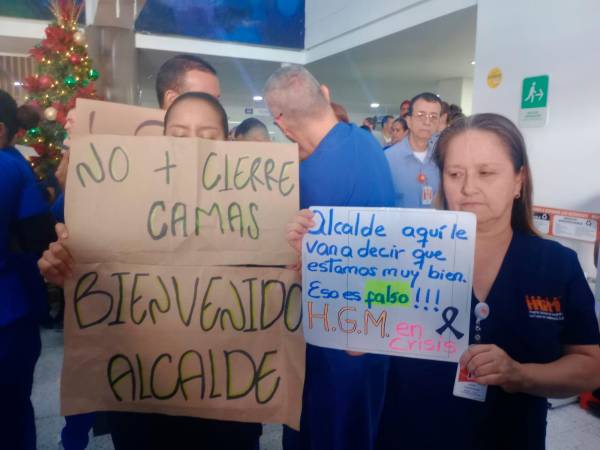 NO + CIERRE
CAMAS
BIENVENIDO
ALCALDE
Alcalde aquí le
van a decir que
estamos muy bien.
Eso es falso!!!
H.G.M. en
crisis
HGM